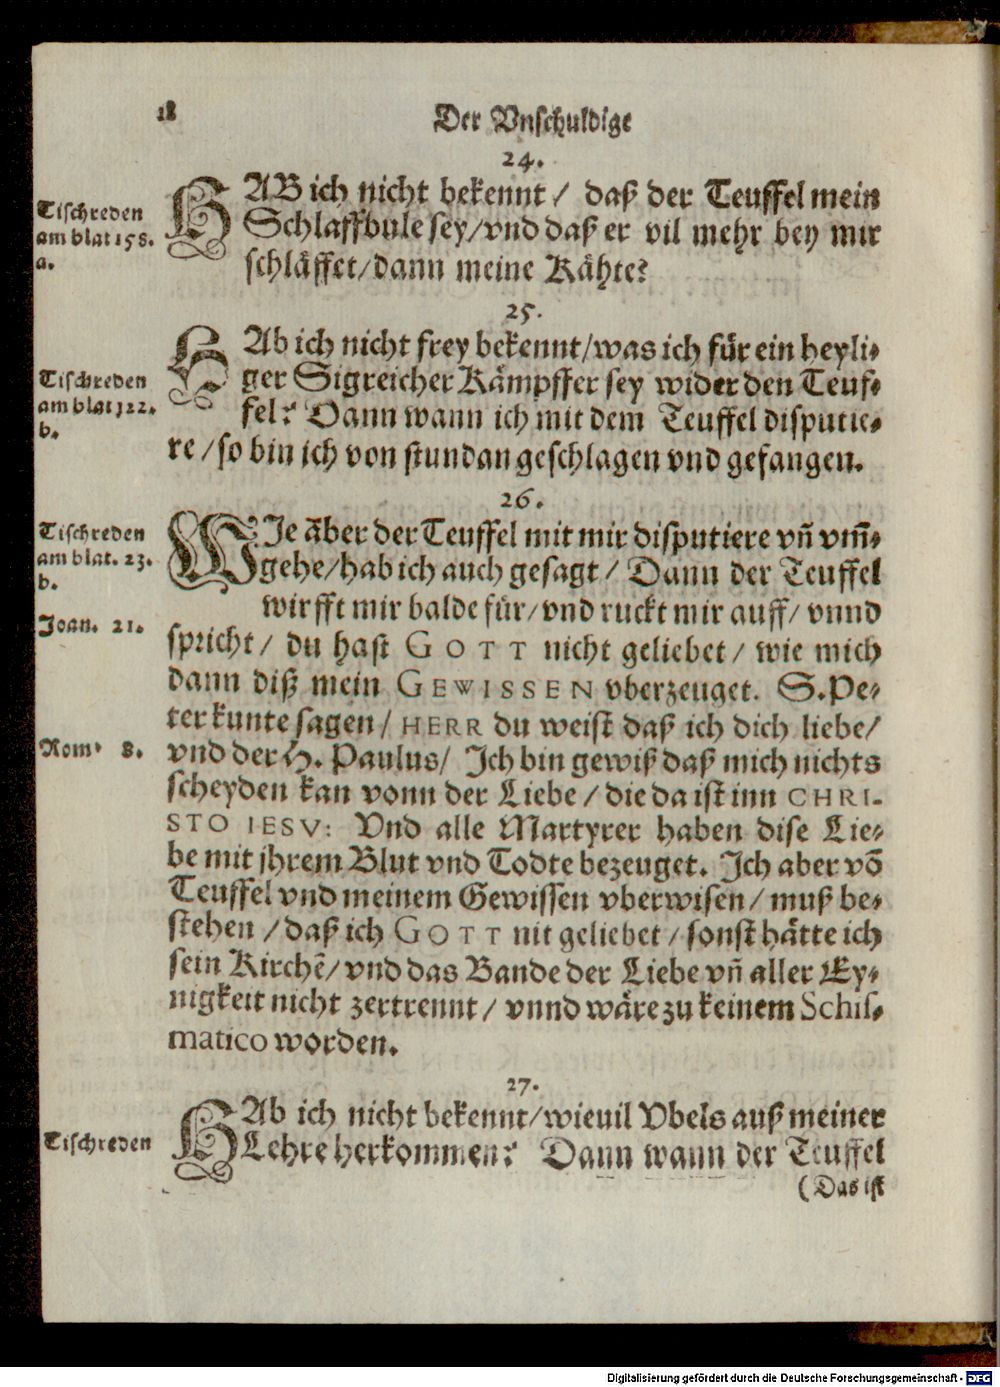 18
Der Vnschuldige
24.
Tischreden
am blat 158.
a.
HAB ich nicht bekennt / daß der Teuffel mein
Schlaffbule sey / vnd daß er vil mehr bey mir
schläffet / dann meine Kähte?
25.
Tischreden
am blat 122.
b.
HAb ich nicht frey bekennt / was ich für ein heyli⸗
ger Sigreicher Kämpffer sey wider den Teuf⸗
fel? Dann wann ich mit dem Teuffel disputie⸗
re / so bin ich von stundan geschlagen vnd gefangen.
26.
Tischreden
am blat. 23.
b.
Joan. 21.
Rom. 8.
WJe aber der Teuffel mit mir disputiere vñ vm̃⸗
gehe / hab ich auch gesagt / Dann der Teuffel
wirfft mir balde für / vnd ruckt mir auff / vnnd
spricht / du hast GOTT nicht geliebet / wie mich
dann diß mein GEWISSEN vberzeuget. S. Pe⸗
ter kunte sagen / HERR du weist daß ich dich liebe /
vnd der H. Paulus / Ich bin gewiß daß mich nichts
scheyden kan vonn der Liebe / die da ist inn CHRI-
STO IESV: Vnd alle Martyrer haben dise Lie⸗
be mit jhrem Blut vnd Todte bezeuget. Ich aber võ
Teuffel vnd meinem Gewissen vberwisen / muß be⸗
stehen / daß ich GOTT nit geliebet / sonst hätte ich
sein Kirchẽ / vnd das Bande der Liebe vñ aller Ey⸗
nigkeit nicht zertrennt / vnnd wäre zu keinem Schis⸗
matico worden.
27.
Tischreden
HAb ich nicht bekennt / wievil Vbels auß meiner
Lehre herkommen? Dann wann der Teuffel
(Das ist
Digitalisierung gefördert durch die Deutsche Forschungsgemeinschaft - DFG